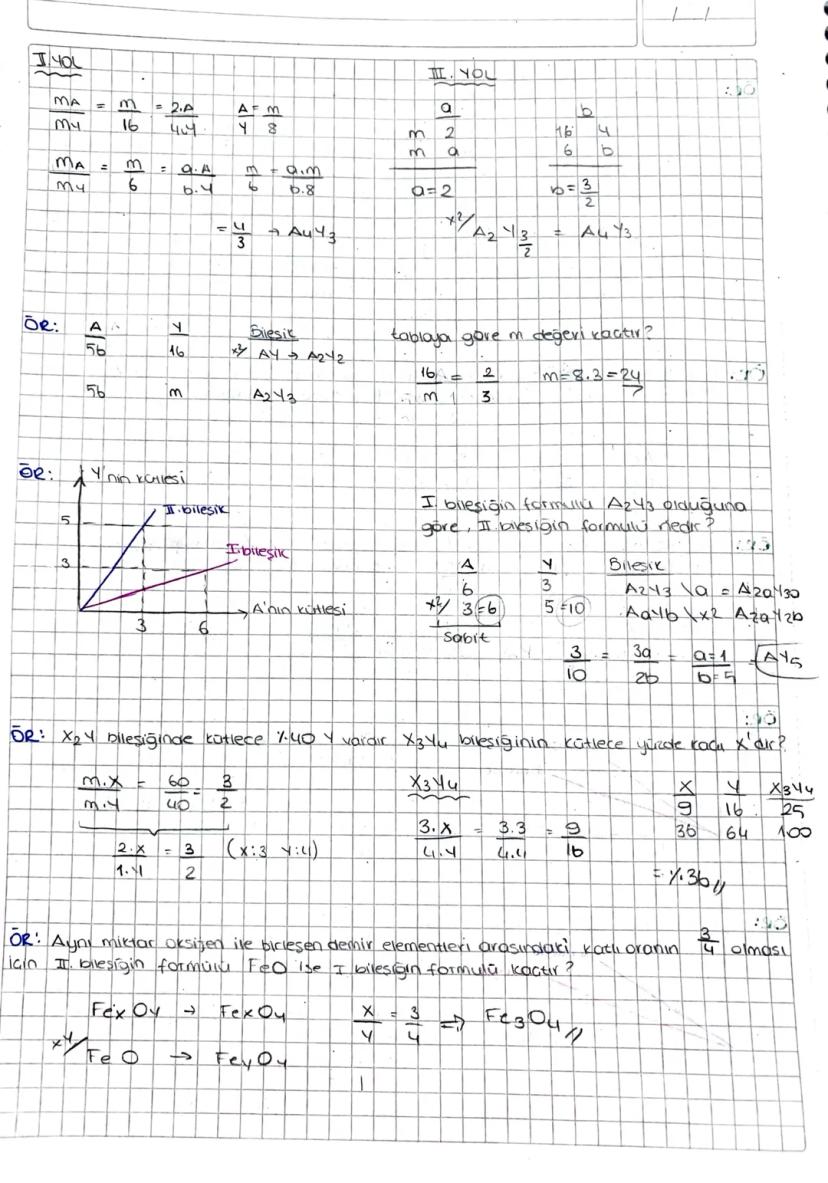 I. YOL
mA/mY = m/16 = 2.A/4.Y   A/Y = m/8
mA/mY = m/6 = a.A/b.Y   m/6 = a.m/b.8
= 4/3 → A4Y3
III. YOL
a   b
m 2   16 4
m a   6 b
a=2   b=3/2
x2/ A2Y3/2 = A4Y3
ÖR: A   Y   Bileşik   tabloya göre m değeri kaçtır?
56   16   x2/ AY → A2Y2
56   m   A2Y3
16/m = 2/3   m=8.3=24
ÖR: Y'nin kütlesi
II. bileşik
5
I. bileşik
3
A'nın kütlesi
3   6
I. bileşiğin formülü A2Y3 olduğuna
göre, II. bileşiğin formülü nedir?
A   Y   Bileşik
6   3   A2Y3 \a = A2aY3a
x2/ 3=6   5=10   AaYb \x2 A2aY2b
sabit
3/10 = 3a/2b = a=1/b=5   AY5
ÖR: X2Y bileşiğinde kütlece %40 Y vardır X3Y4 bileşiğinin kütlece yüzde kaçı X'dir?
m.X/m.Y = 60/40 = 3/2
2.X/1.Y = 3/2 (X:3 Y:4)
X3Y4
3.X/4.Y = 3.3/4.4 = 9/16
X   Y   X3Y4
9   16   25
36   64   100
= %36//
ÖR: Aynı miktar oksijen ile birleşen demir elementleri arasındaki katlı oranın 3/4 olması
için II. bileşiğin formülü FeO ise I bileşiğin formülü kaçtır?
FexOy → FexOy   x/y = 3/4 ⇒ Fe3O4//
xy/ FeO → FeyOy